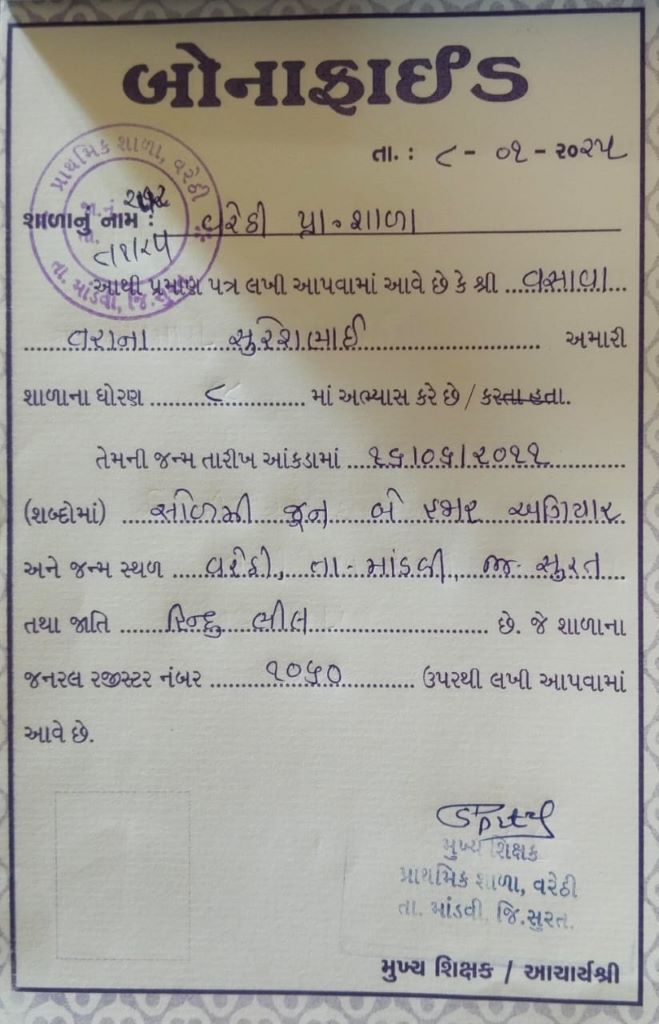 બોનાફાઈડ
તા. : ૮ - ૦૧ - ૨૦૨૫
પ્રાથમિક શાળા, વરેઠી
તા. માંડવી, જિ.સુરત
શાળાનું નામ : વરેઠી પ્રા. શાળા
આથી પ્રમાણ પત્ર લખી આપવામાં આવે છે કે શ્રી વસાવા
સુરેશભાઈ અમારી
શાળાના ધોરણ ૮ માં અભ્યાસ કરે છે / કરતા હતા.
તેમની જન્મ તારીખ આંકડામાં ૧૬/૦૬/૨૦૧૧
(શબ્દોમાં) સોળમી જુન બે હજાર અગિયાર
અને જન્મ સ્થળ વરેઠી, તા- માંડવી, જી- સુરત
તથા જાતિ હિન્દુ ભીલ છે. જે શાળાના
જનરલ રજીસ્ટર નંબર ૧૦૫૦ ઉપરથી લખી આપવામાં
આવે છે.
મુખ્ય શિક્ષક
પ્રાથમિક શાળા, વરેઠી
તા. માંડવી, જિ.સુરત.
મુખ્ય શિક્ષક / આચાર્યશ્રી